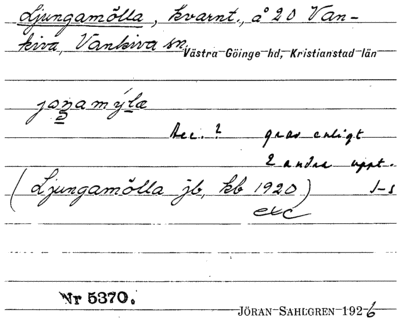 Ljungamölla, kvarnt., å 20 Van-
kiva, Vankiva sn, Västra Göinge hd, Kristianstad län
Acc. 2 grav enligt
2 andra uppt.
(Ljungamölla jb, kb 1920) J-s
exc
Nr 5370.
JÖRAN SAHLGREN 1926